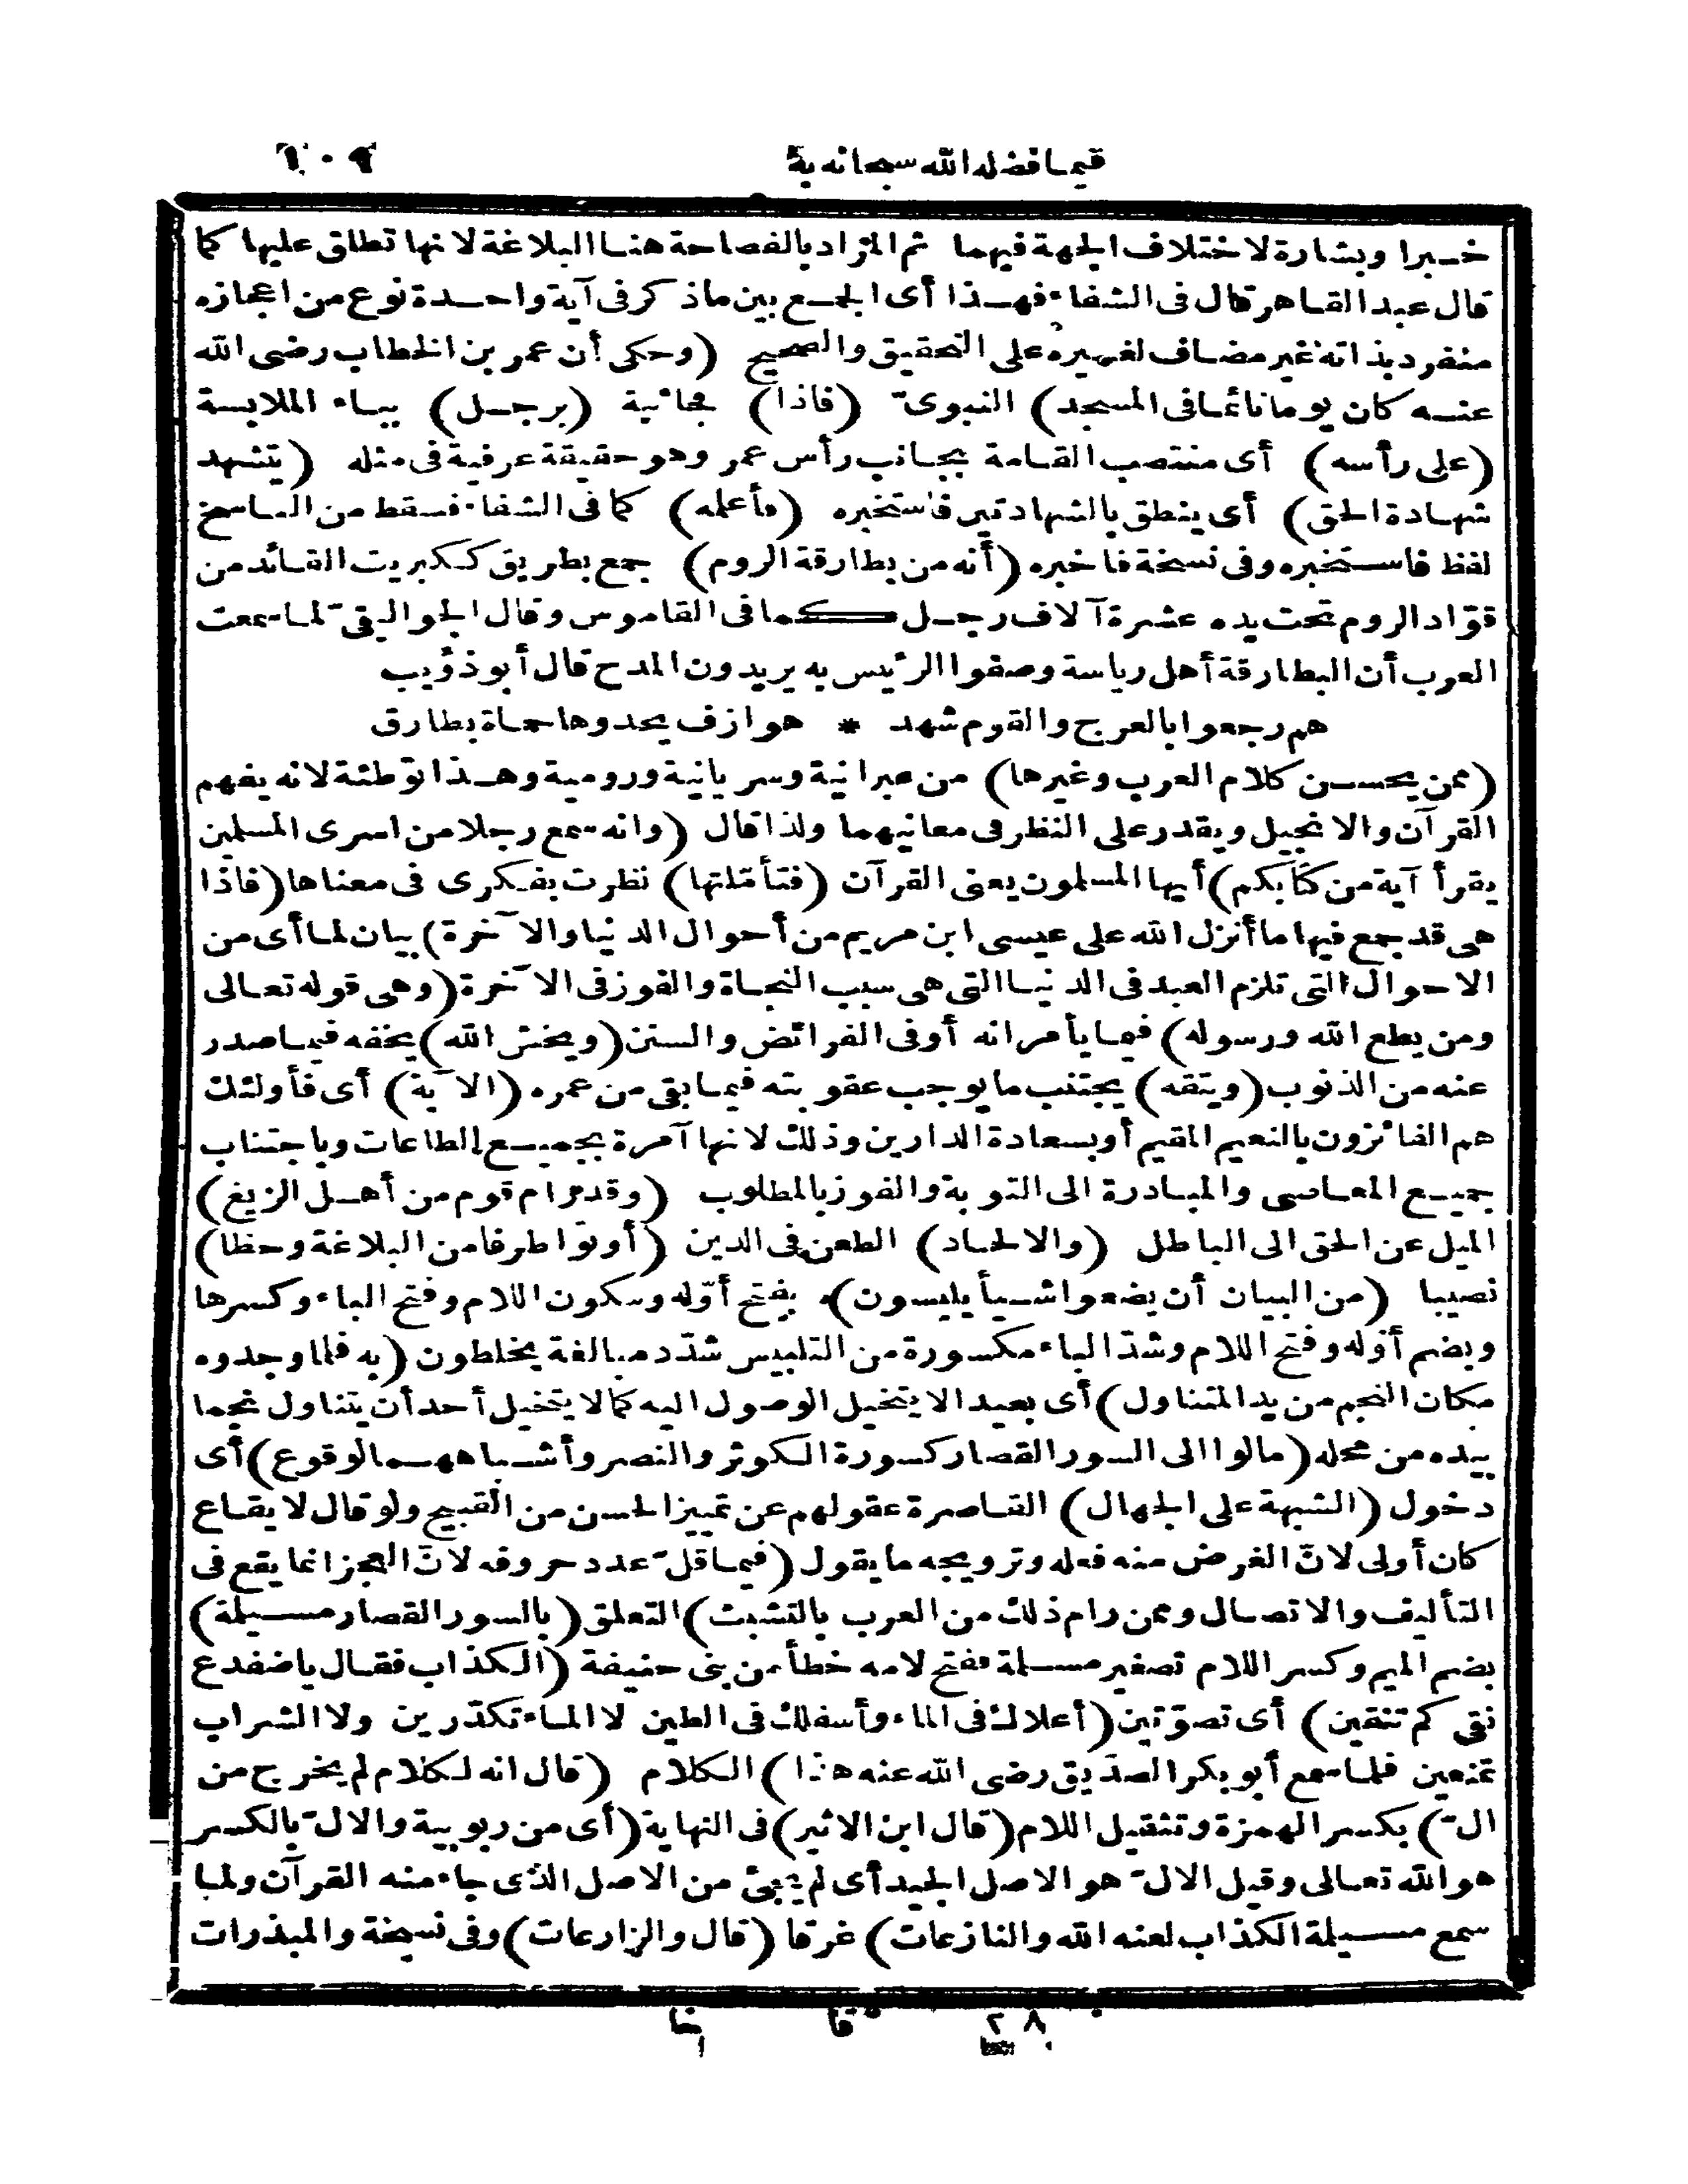 فيما فضله الله سبحانه به ٦٠٩
خبرا وبشارة لاختلاف الجهة فيهما ثم المراد بالفصاحة هنا البلاغة لانها تطلق عليها كما
قال عبد القاهر قال فى الشفاء فهذا أى الجمع بين ماذكر فى آية واحدة نوع من اعجازه
منفرد بذاته غير مضاف لغيره على التحقيق والصحيح (وحكى أن عمر بن الخطاب رضى الله
عنه كان يوما نائما فى المسجد) النبوىّ (فاذا) فجائية (برجل) بباء الملابسة
(على رأسه) أى منتصب القامة بجانب رأس عمر وهو حقيقة عرفية فى مثله (يتشهد
شهادة الحق) أى ينطق بالشهادتين فاستخبره (فأعلمه) كما فى الشفاء فسقط من الناسخ
لفظ فاستخبره وفى نسخة فاخبره (أنه من بطارقة الروم) جمع بطريق ككبريت القائد من
قوّاد الروم تحت يده عشرة آلاف رجل كما فى القاموس وقال الجواليقىّ لما سمعت
العرب أن البطارقة أهل رياسة وصفوا الرئيس به يريدون المدح قال أبو ذؤيب
هم رجعوا بالعرج والقوم شهد * هوازن يحدوها حماة بطارق
(ممن يحسن كلام العرب وغيرها) من عبرانية وسريانية ورومية وهذا توطئة لانه يفهم
القرآن والانجيل ويقدر على النظر فى معانيهما ولذا قال (وانه سمع رجلا من اسرى المسلمين
يقرأ آية من كتابكم) أيها المسلمون يعنى القرآن (فتأمّلتها) نظرت بفكرى فى معناها (فاذا
هى قد جمع فيها ما أنزل الله على عيسى ابن مريم من أحوال الدنيا والآخرة) بيان لما أى من
الاحوال التى تلزم العبد فى الدنيا التى هى سبب النجاة والفوز فى الآخرة (وهى قوله تعالى
ومن يطع الله ورسوله) فيما يأمرانه أو فى الفرائض والسنن (ويخش الله) يخفه فيما صدر
عنه من الذنوب (ويتقه) يجتنب ما يوجب عقوبته فيما بقى من عمره (الآية) أى فأولئك
هم الفائزون بالنعيم المقيم أو بسعادة الدارين وذلك لانها آمرة بجميع الطاعات وباجتناب
جميع المعاصى والمبادرة الى التوبة والفوز بالمطلوب (وقد رام قوم من أهل الزيغ)
الميل عن الحق الى الباطل (والالحاد) الطعن فى الدين (أوتوا طرفا من البلاغة وحظا)
نصيبا (من البيان أن يضعوا شيأ يلبسون) بفتح أوّله وسكون اللام وفتح الباء وكسرها
وبضم أوّله وفتح اللام وشدّ الباء مكسورة من التلبيس شدّد مبالغة يخلطون (به فلما وجدوه
مكان النجم من يد المتناول) أى بعيدا لا يتخيل الوصول اليه كما لا يتخيل أحد أن يتناول نجما
بيده من محله (مالوا الى السور القصار كسورة الكوثر والنصر وأشباههما لوقوع) أى
دخول (الشبهة على الجهال) القاصرة عقولهم عن تمييز الحسن من القبيح ولو قال لايقاع
كان أولى لانّ الغرض منه فعله وترويجه ما يقول (فيما قلّ عدد حروفه لانّ العجز انما يقع فى
التأليف والاتصال وممن رام ذلك من العرب بالتشبث) التعلق (بالسور القصار مسيلمة)
بضم الميم وكسر اللام تصغير مسلمة ففتح لامه خطأ من بنى حنيفة (الكذاب فقال يا ضفدع
نقى كم تنقين) أى تصوّتين (أعلاك فى الماء وأسفلك فى الطين لا الماء تكدّرين ولا الشراب
تمنعين فلما سمع أبو بكر الصدّيق رضى الله عنه هذا) الكلام (قال انه لكلام لم يخرج من
الّ) بكسر الهمزة وتثقيل اللام (قال ابن الاثير) فى النهاية (أى من ربوبية والالّ بالكسر
هو الله تعالى وقيل الالّ هو الاصل الجيد أى لم يجئ من الاصل الذى جاء منه القرآن ولما
سمع مسيلمة الكذاب لعنه الله والنازعات) غرقا (قال والزارعات) وفى نسخة والمبذرات